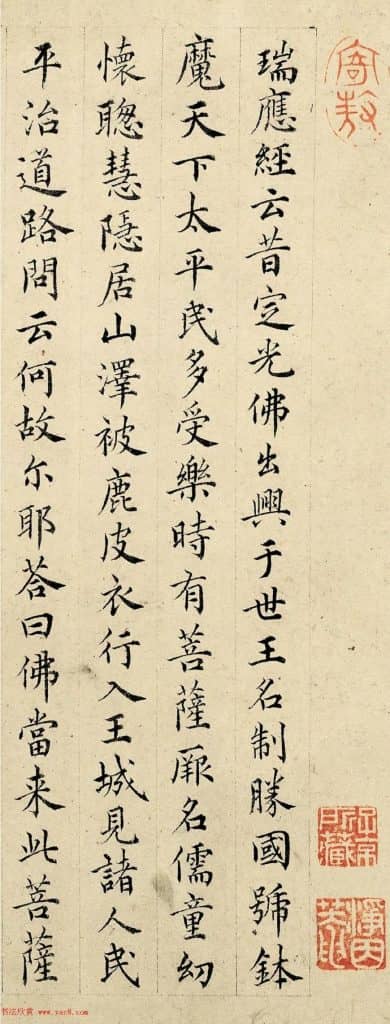 瑞應經云昔定光佛出興于世王名制勝國號鉢
魔天下太平民多受樂時有菩薩厥名儒童幼
懷聰慧隱居山澤被鹿皮衣行入王城見諸人民
平治道路問云何故尔耶荅曰佛當来此菩薩
书法欣赏 www.yac8.com